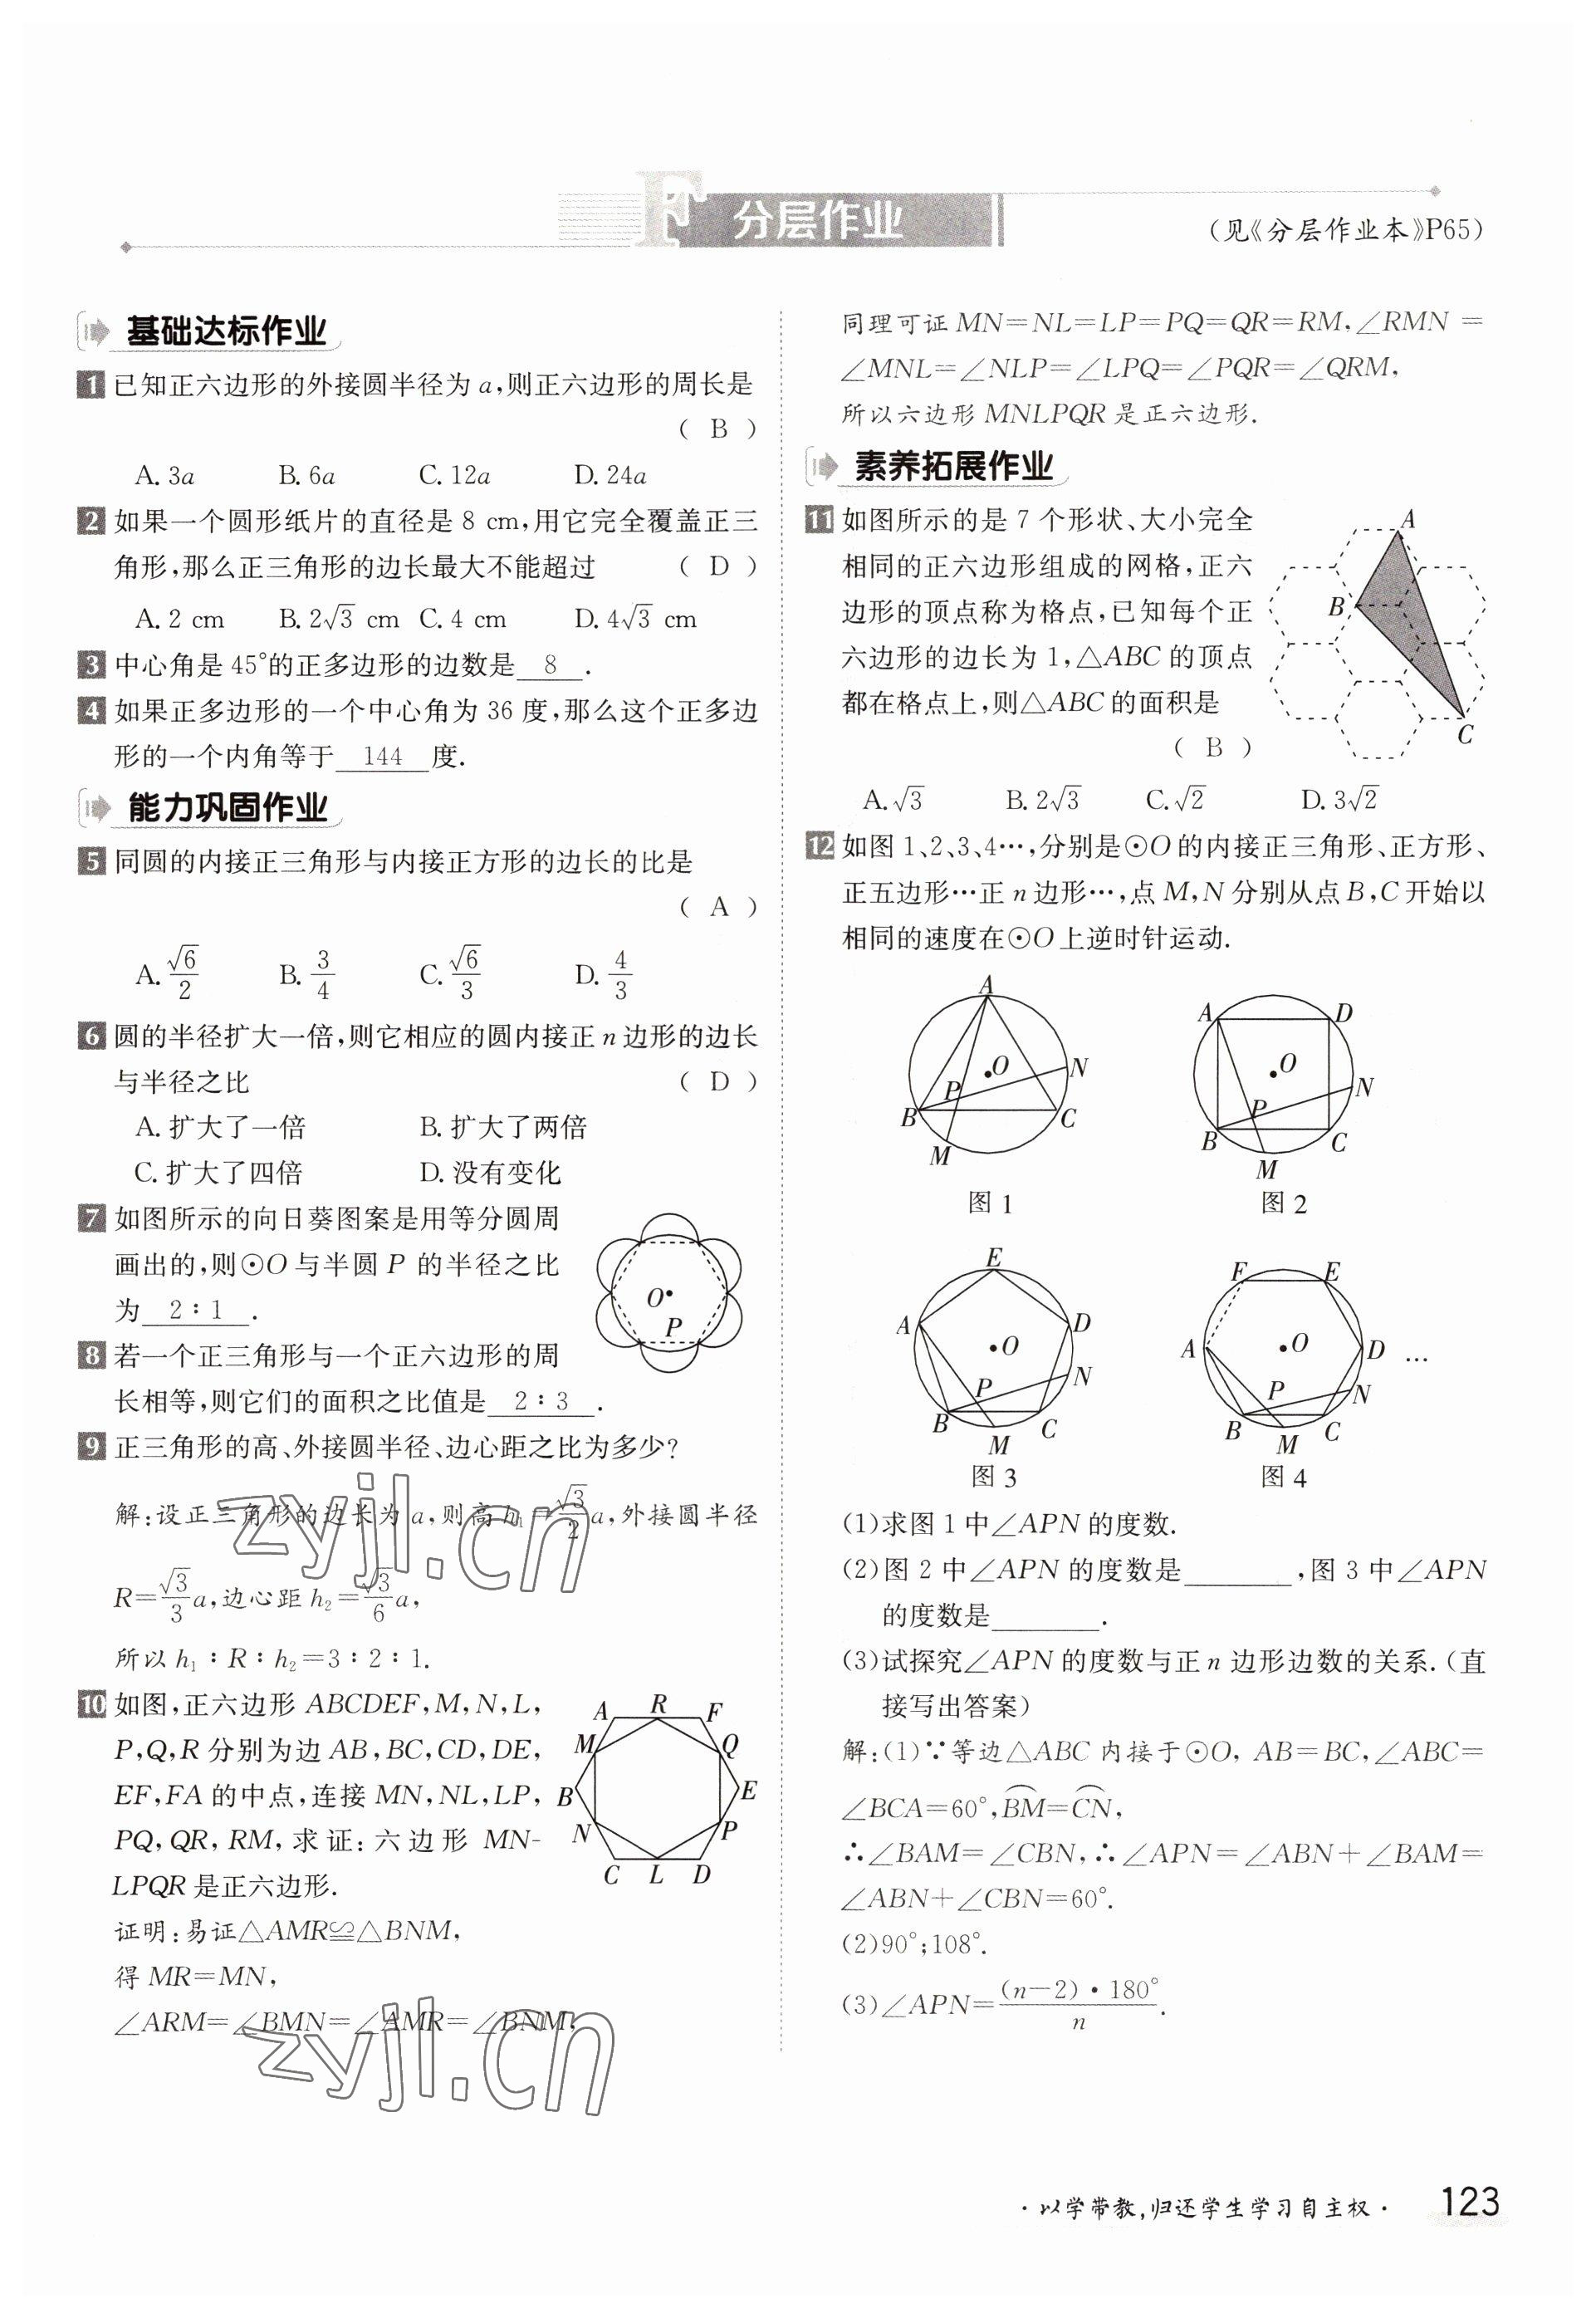 F 分层作业
(见《分层作业本》P65)
基础达标作业
1 已知正六边形的外接圆半径为 a,则正六边形的周长是
( B )
A. 3a B. 6a C. 12a D. 24a
2 如果一个圆形纸片的直径是 8 cm,用它完全覆盖正三
角形,那么正三角形的边长最大不能超过 ( D )
A. 2 cm B. 2√3 cm C. 4 cm D. 4√3 cm
3 中心角是 45°的正多边形的边数是 8 .
4 如果正多边形的一个中心角为 36 度,那么这个正多边
形的一个内角等于 144 度.
能力巩固作业
5 同圆的内接正三角形与内接正方形的边长的比是
( A )
A. √6/2 B. 3/4 C. √6/3 D. 4/3
6 圆的半径扩大一倍,则它相应的圆内接正 n 边形的边长
与半径之比 ( D )
A. 扩大了一倍 B. 扩大了两倍
C. 扩大了四倍 D. 没有变化
7 如图所示的向日葵图案是用等分圆周
画出的,则⊙O 与半圆 P 的半径之比
为 2∶1 .
O
P
8 若一个正三角形与一个正六边形的周
长相等,则它们的面积之比值是 2∶3 .
9 正三角形的高、外接圆半径、边心距之比为多少?
解:设正三角形的边长为 a,则高 h₁=√3/2 a,外接圆半径
R=√3/3 a,边心距 h₂=√3/6 a,
所以 h₁∶R∶h₂=3∶2∶1.
zyjl.cn
10 如图,正六边形 ABCDEF,M,N,L,
P,Q,R 分别为边 AB,BC,CD,DE,
EF,FA 的中点,连接 MN,NL,LP,
PQ,QR,RM,求证:六边形 MN-
LPQR 是正六边形.
A R F
M Q
B E
N P
C L D
证明:易证△AMR≌△BNM,
得 MR=MN,
∠ARM=∠BMN=∠AMR=∠BNM,
zyjl.cn
同理可证 MN=NL=LP=PQ=QR=RM,∠RMN=
∠MNL=∠NLP=∠LPQ=∠PQR=∠QRM,
所以六边形 MNLPQR 是正六边形.
素养拓展作业
11 如图所示的是 7 个形状、大小完全
相同的正六边形组成的网格,正六
边形的顶点称为格点,已知每个正
六边形的边长为 1,△ABC 的顶点
都在格点上,则△ABC 的面积是
( B )
A
B
C
A. √3 B. 2√3 C. √2 D. 3√2
12 如图 1、2、3、4…,分别是⊙O 的内接正三角形、正方形、
正五边形…正 n 边形…,点 M,N 分别从点 B,C 开始以
相同的速度在⊙O 上逆时针运动.
A O N P B C M
图 1
A D O N P B C M
图 2
E A D O N P B C M
图 3
F E A O D P N B M C …
图 4
(1)求图 1 中∠APN 的度数.
(2)图 2 中∠APN 的度数是________,图 3 中∠APN
的度数是________.
(3)试探究∠APN 的度数与正 n 边形边数的关系.(直
接写出答案)
解:(1)∵等边△ABC 内接于⊙O, AB=BC,∠ABC=
∠BCA=60°,⌒BM=⌒CN,
∴∠BAM=∠CBN,∴∠APN=∠ABN+∠BAM=
∠ABN+∠CBN=60°.
(2)90°;108°.
(3)∠APN=(n-2)•180°/n.
·以学带教,归还学生学习自主权· 123